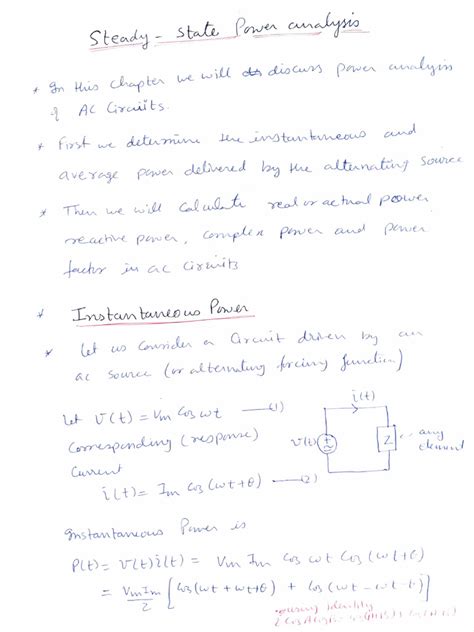 Steady - state Power analysis
* In this chapter we will discuss power analysis
of AC Circuits.
* First we determine the instantaneous and
average power delivered by the alternating source
* Then we will calculate real or actual power
reactive power, complex power and power
factor in ac circuits
* Instantaneous Power
* Let us consider a Circuit driven by an
ac source (or alternating forcing function)
Let v(t) = Vm Cos ωt —(1)
Corresponding (response)
Current
i(t) = Im Cos (ωt + θ) —(2)
i(t)
v(t)
Z
any
element
Instantaneous Power is
P(t) = v(t) i(t) = Vm Im Cos ωt Cos (ωt + θ)
= VmIm/2 [Cos (ωt + ωt + θ) + Cos (ωt - ωt - θ)]
using identity